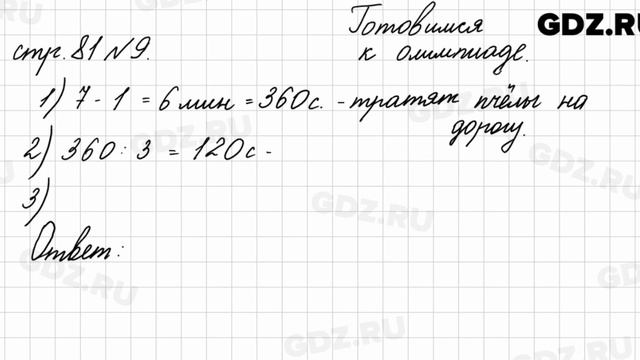 Готовимся
к олимпиаде.
GDZ.RU
стр. 81 №9.
1) 7 - 1 = 6 мин = 360 с. - тратят пчёлы на
дорогу.
2) 360 : 3 = 120 с -
3)
Ответ:
GDZ.RU
GDZ.RU
GDZ.RU
GDZ.RU
GDZ.RU
GDZ.RU